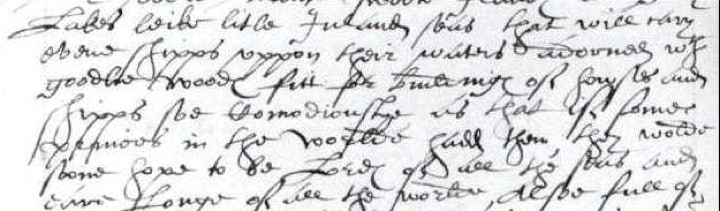 Lakes leike litle Inland seas that will cary
evene shipps uppon their waters adorned wth
goodlie woodes fitt for buildinge of howses and
shipps soe comodiouslye as that if some
princes in the worlde hadd them they wolde
soone hope to be Lordes of all the seas and
eare longe of all the worlde, Alsoe full of